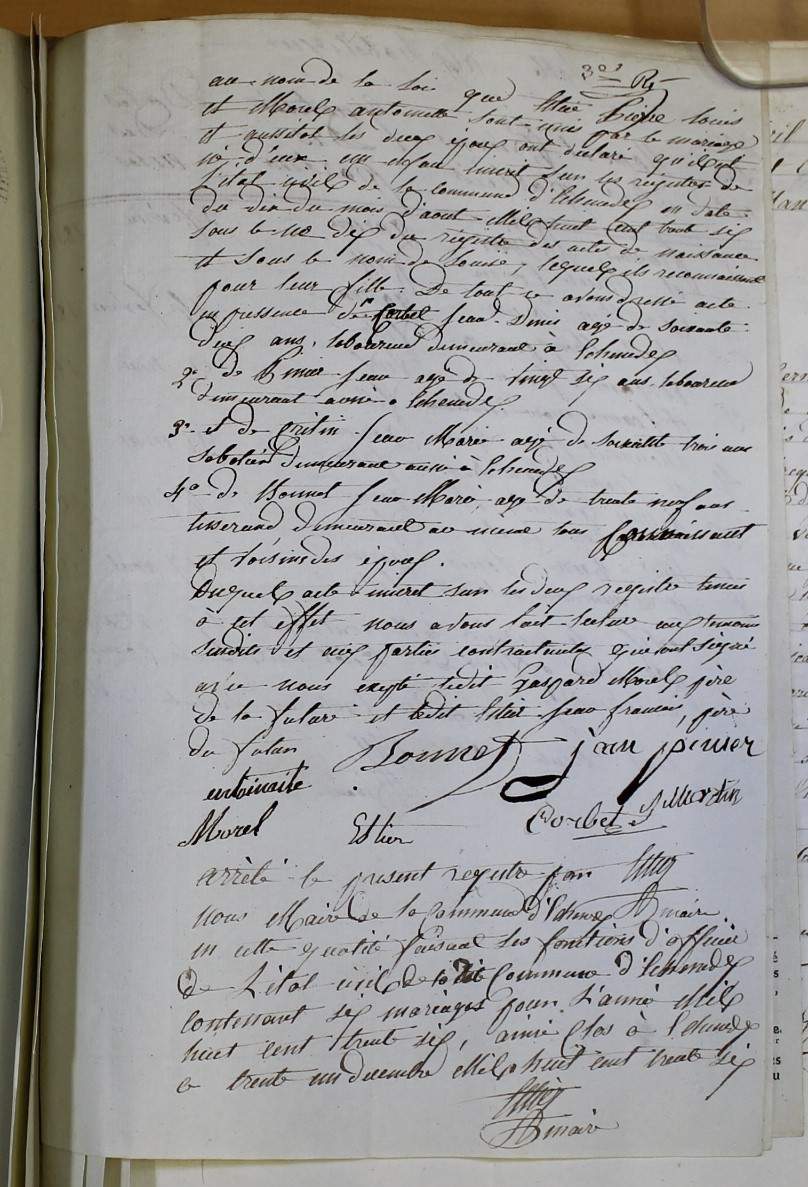 3e Rt
au nom de la loi que Estier Pierre Louis
et Morel antoinette sont unis par le mariage
et aussitot les deux époux ont déclaré qu'il est
né d'eux un enfan inscrit sur les régistres de
L'état civil de la commune d'Echandelys en date
du dix du mois d'aout Mil huit cent trente six
sous le no dix du registre des actes de naissance
et sous le nom de Louise, lequel ils reconnaissent
pour leur fille. De tout ce avons dressé acte
en presence de 1er Corbet Jean Denis agé de soixante
dix ans, laboureur demeurant à Echandelys
2e de Pinier Jean agé de vingt six ans laboureur
demeurant aussi a Echandelys.
3e de Jean Marie agé de soixante trois ans
Sabotier demeurant aussi à Echandelys
4e de Bonnet Jean Marie, agé de trente neuf ans
tisserand, demeurant au meme tous Connaissant
et voisins des époux.
Duquel acte inscrit sur les deux registre tenus
à cet effet nous avons fait lecture aux temoins
susdits et aux parties contractantes qui ont signé
avec nous excepté ledit Gaspard Morel père
de la future et ledit Estier Jean francois, père
du futur
Bonnet jean pinier
entoinaite
Morel Estier Corbet J Martin
arrêté le present registre par
Nous Maire de la Commune d'Echandelys maire
en cette qualité faisant les fonctions d'officier
de L'état civil de la dite Commune d'Echandelys
contenant six mariages pour L'année Mil
huit cent trente six, ainsi Clos à Echandelys
ce trente un Decembre Mil huit cent trente six
maire